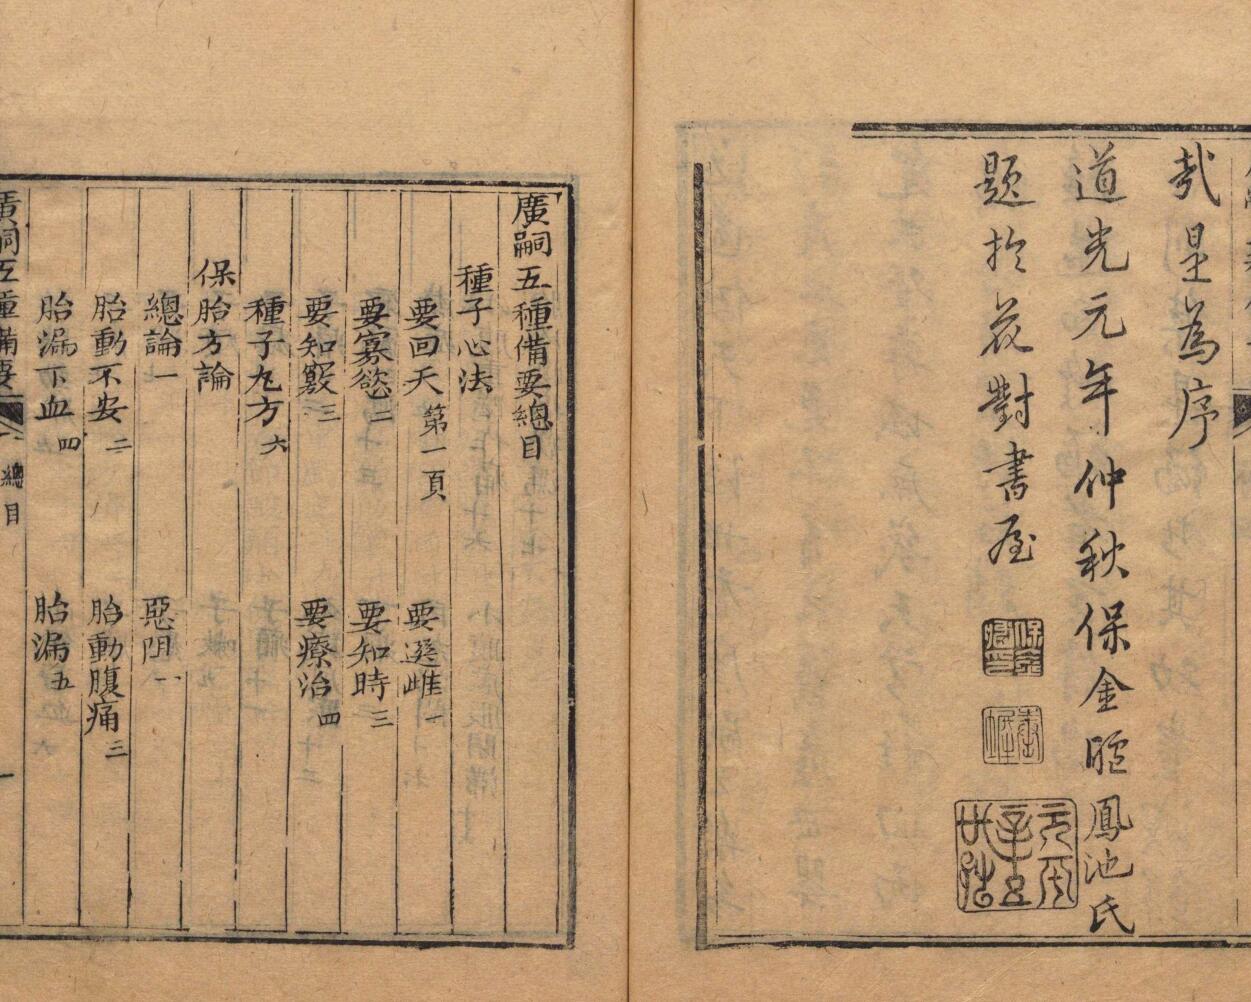 哉是為序
道光元年仲秋保金　鳳池氏
題於花對書屋
廣嗣五種備要總目
種子心法
要回天第一頁　要選雌一
要寡慾二　要知時三
要知竅三　要療治四
種子九方六
保胎方論
總論一　惡阻一
胎動不安二　胎動腹痛三
胎漏下血四　胎漏五
廣嗣五種備要　總目　一